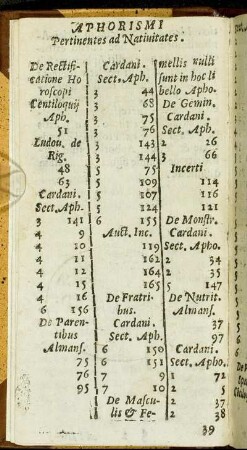 APHORISMI
Pertinentes ad Natiuitates.
De Rectifi-
catione Ho
roscopi
Centiloquij
Aph.
51
Ludou. de
Rig.
48
63
Cardani.
Sect. Aph.
3 141
4 9
4 10
4 11
4 12
4 15
4 16
6 156
De Paren-
tibus
Almans.
75
76
95
Cardani.
Sect. Aph.
3 44
3 68
3 75
3 76
3 143
3 144
5 75
5 109
5 107
5 124
6 155
Auct. Inc.
119
162
164
165
De Fratri-
bus.
Cardani.
Sect. Aph.
6 150
6 151
7 9
7 10
De Mascu-
lis & Fe-
mellis nulli
sunt in hoc li
bello Apho.
De Gemin.
Cardani.
Sect. Aph.
2 26
2 66
Incerti
114
116
121
De Monstr.
Cardani.
Sect. Apho.
2 34
2 35
5 147
De Nutrit.
Almans.
37
97
Cardani.
Sect. Apho.
1 72
2 5
2 37
2 38
39